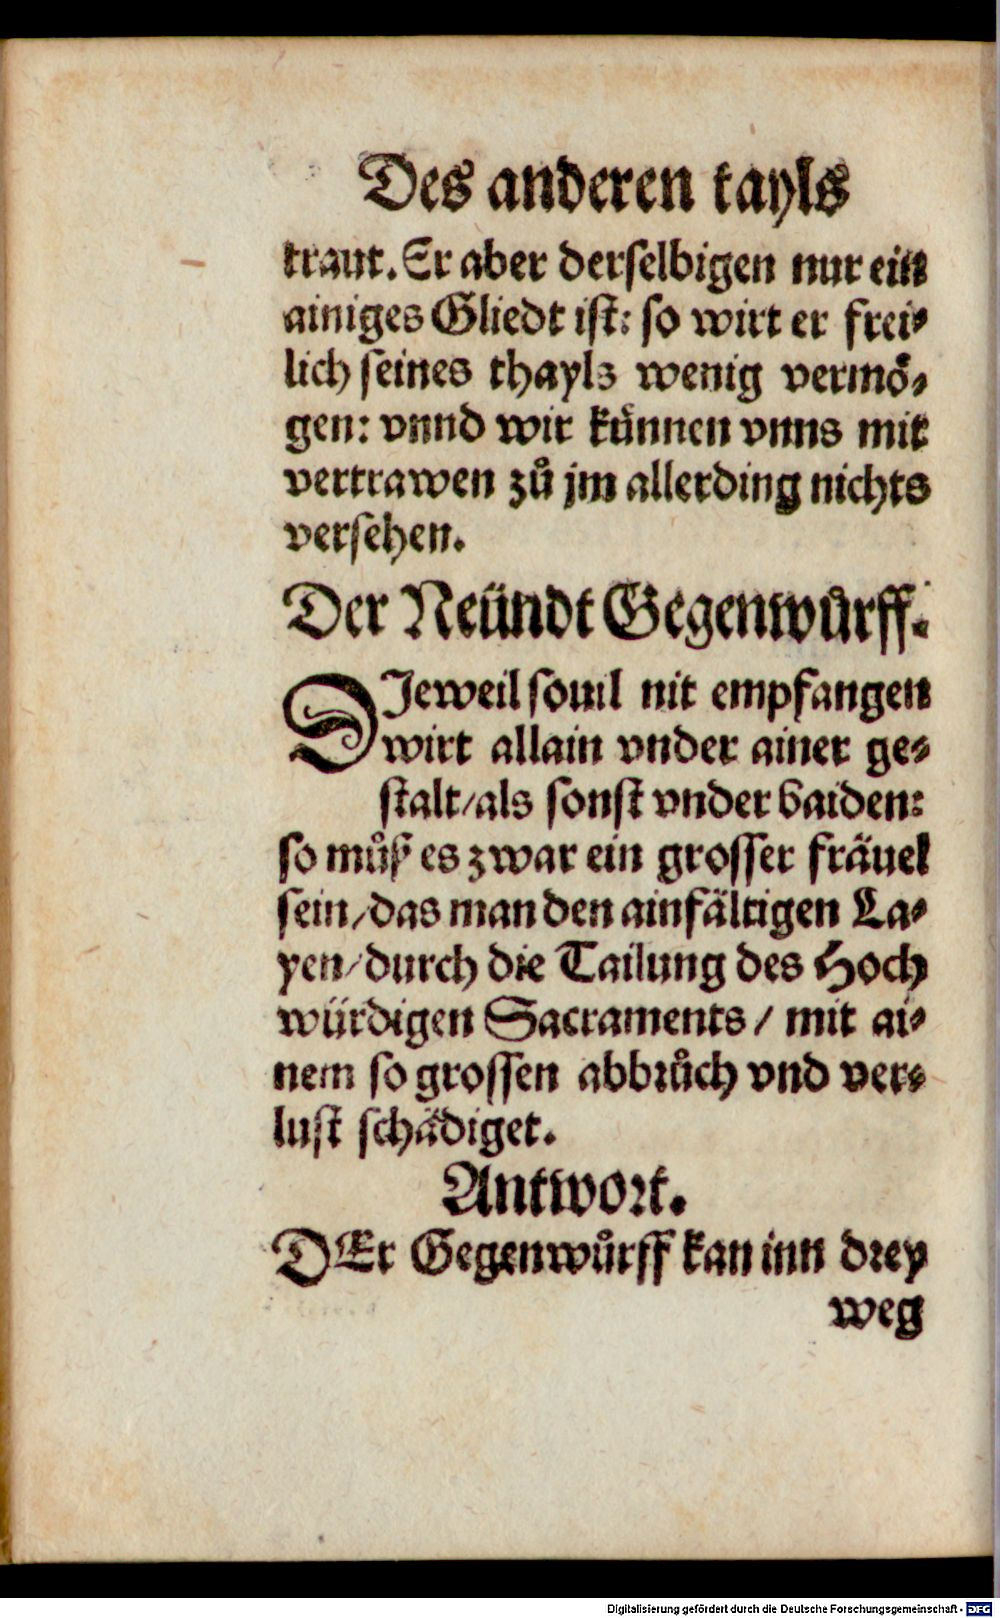 Des anderen tayls
traut. Er aber derselbigen nur ein
ainiges Gliedt ist: so wirt er frei⸗
lich seines thayls wenig vermoͤ⸗
gen: vnnd wir kuͤnnen vnns mit
vertrawen zuͦ jm allerding nichts
versehen.
Der Neündt Gegenwuͦrff.
DJeweil souil nit empfangen
wirt allain vnder ainer ge⸗
stalt/als sonst vnder baiden:
so muͦß es zwar ein grosser fräuel
sein/das man den ainfältigen La⸗
yen/durch die Tailung des Hoch
würdigen Sacraments/ mit ai⸗
nem so grossen abbruͦch vnd ver⸗
lust schädiget.
Antwort.
DEr Gegenwuͦrff kan inn drey
weg
Digitalisierung gefördert durch die Deutsche Forschungsgemeinschaft - DFG